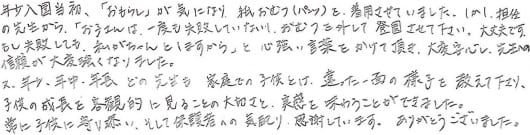 年少入園当初、「おもらし」が気になり、紙おむつ(パンツ)を着用させていました。しかし、担任
の先生から、「お子さんは、一度も失敗していないし、おむつを外して登園させて下さい。大丈夫です。
もし失敗しても、私がちゃんとしますから」と心強い言葉をかけて頂き、大変安心し、先生への
信頼が大変強くなりました。
又、年少、年中、年長どの先生も家庭での子供とは、違った一面の様子を教えて下さり、
子供の成長を客観的に見ることの大切さと、喜感を味わうことができました。
常に子供に寄り添い、そして保護者への気配り、感謝しています。ありがとうございました。